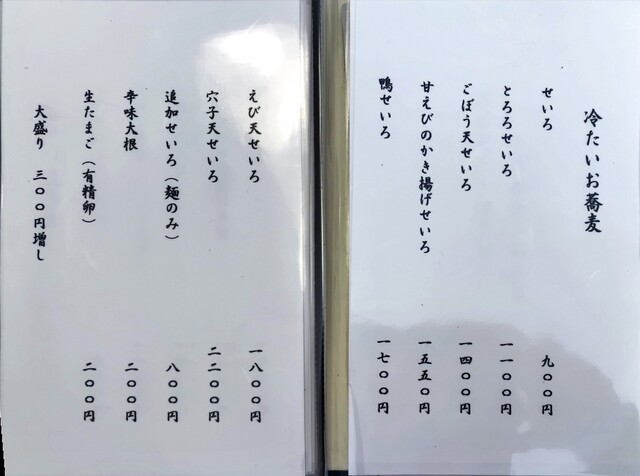 冷たいお蕎麦
せいろ 九〇〇円
とろろせいろ 一一〇〇円
ごぼう天せいろ 一四〇〇円
甘えびのかき揚げせいろ 一五五〇円
鴨せいろ 一七〇〇円
えび天せいろ 一八〇〇円
穴子天せいろ 二二〇〇円
追加せいろ(麺のみ) 八〇〇円
辛味大根 二〇〇円
生たまご(有精卵) 二〇〇円
大盛り 三〇〇円増し